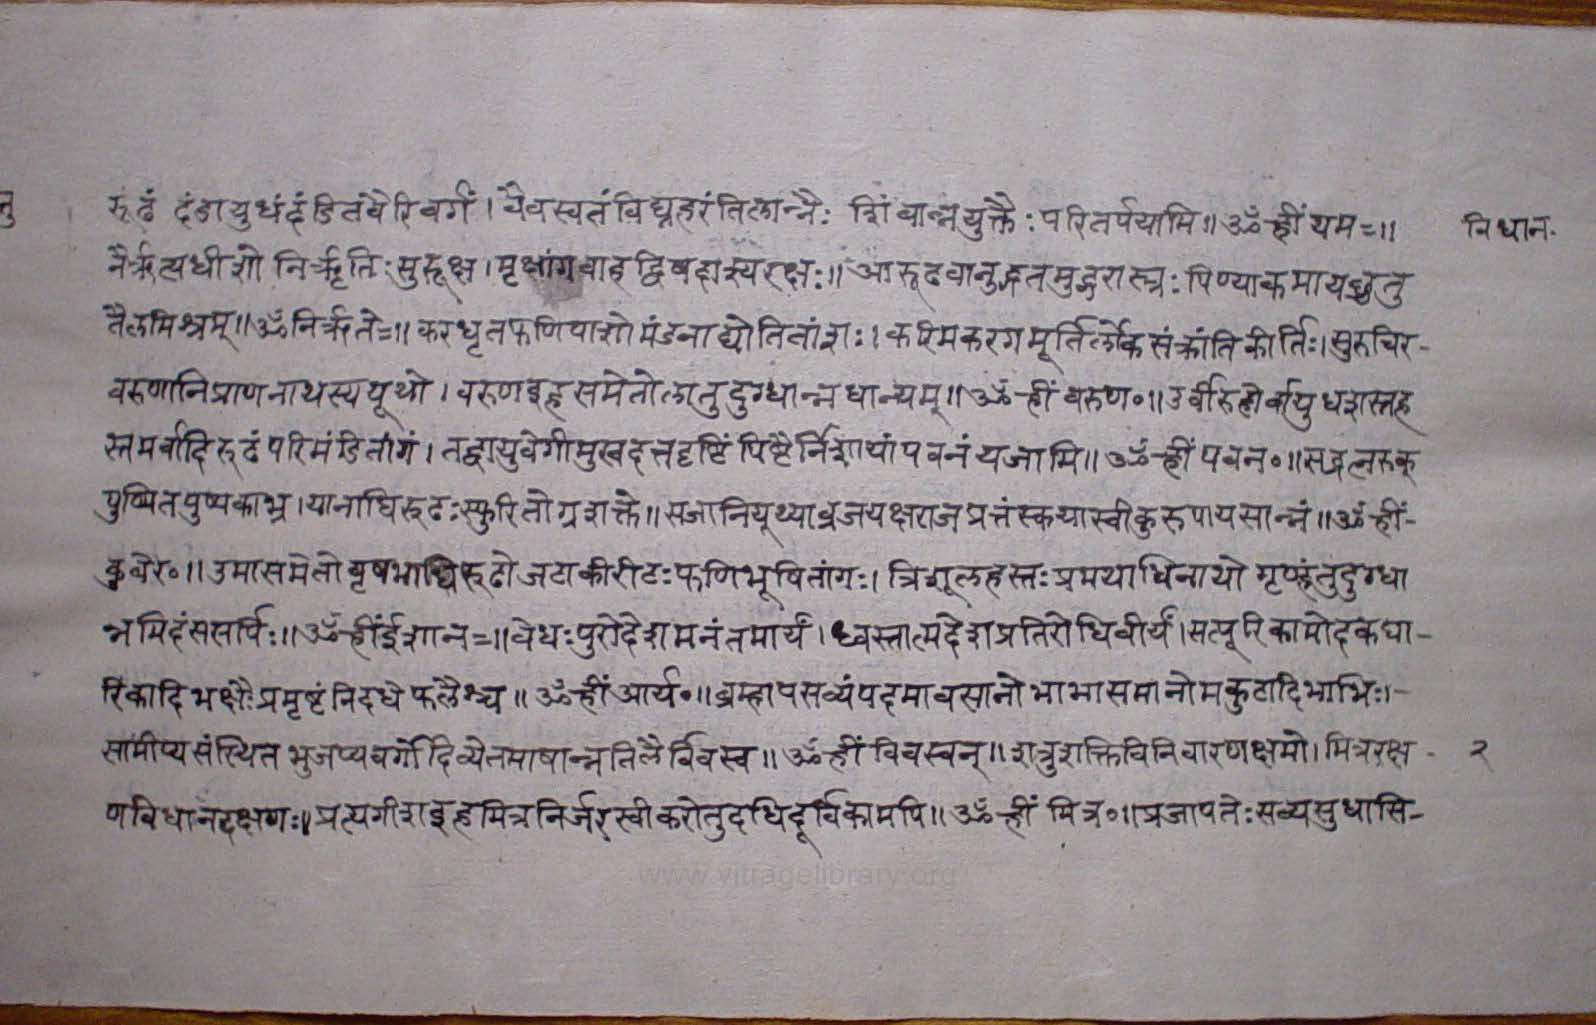 रूढं दंडायुधंदंडितवैरिवर्गं। वैवस्वतंविघ्नहरंतिलान्नैः शिंबान्नयुक्तैः परितर्पयामि॥ॐ ह्रीं यम=॥ विधान.
नैर्ऋत्यधीशो निर्ऋतिःसुरूक्ष। मृक्षांगवाह द्विषदास्यरक्षः॥ आरूढवानुद्गतमुद्गरास्त्रः पिण्याकमायच्छतु
तैलमिश्रम्॥ॐनिर्ऋते=॥ करधृतफणिपाशो मंडनाद्योतिताशः। करिमकरगमूर्तिर्लोकसंक्रांतिकीर्तिः। सुरुचिर-
वरुणानिप्राणनाथस्यपूथो। वरुणइहसमेतोलातुदुग्धान्नधान्यम्॥ॐ ह्रीं वरुण॰॥उर्वीरुहोर्वायुधशस्तह
स्तमर्वादिरूढंपरिमंडितांगं। तद्वायुवेगीमुखदत्तदृष्टिं पिष्टैर्निशायां पवनं यजामि॥ॐ ह्रीं पवन॰॥सद्रत्नरुक्
पुष्पितपुष्पकाभ्र। यानाधिरूढःस्फुरितोग्रशक्ते॥ सजानियूथ्याव्रजयक्षराजप्रत्तंस्कयास्वीकुरुपायसान्नं॥ॐ ह्रीं-
कुबेर॰॥उमासमेतो वृषभाधिरूढो जटाकीरीटःफणिभूषितांगः। त्रिशूलहस्तःप्रमथाधिनाथो गृण्हंतुदुग्धा
न्नमिदंससर्पिः॥ॐ ह्रींईशान=॥वेधःपुरोदेशमनंतमार्यं। ध्वस्तात्मदेशप्रतिरोधिवीर्यं।सत्पूरिकामोदकधा-
रिकादिभक्षैःप्रमृष्टंनिदधे फलैश्च॥ॐ ह्रीं आर्य॰॥ब्रम्हापसव्यंपदमावसानो भाभासमानोमकुटादिभाभिः।-
सामीप्यसंस्थितभुजप्यवर्गोदिव्येतमाषान्नतिलैर्विवस्व॥ॐ ह्रीं विवस्वन्॥शत्रुशक्तिविनिवारणक्षमो। मित्ररक्ष- २
णविधानदक्षणः॥प्रत्यगीशइहमित्रनिर्जरस्वीकरोतुदधिदूर्विकामपि॥ॐ ह्रीं मित्र॰॥प्रजापतेःसव्यसुधासि-
www.vitragelibrary.org